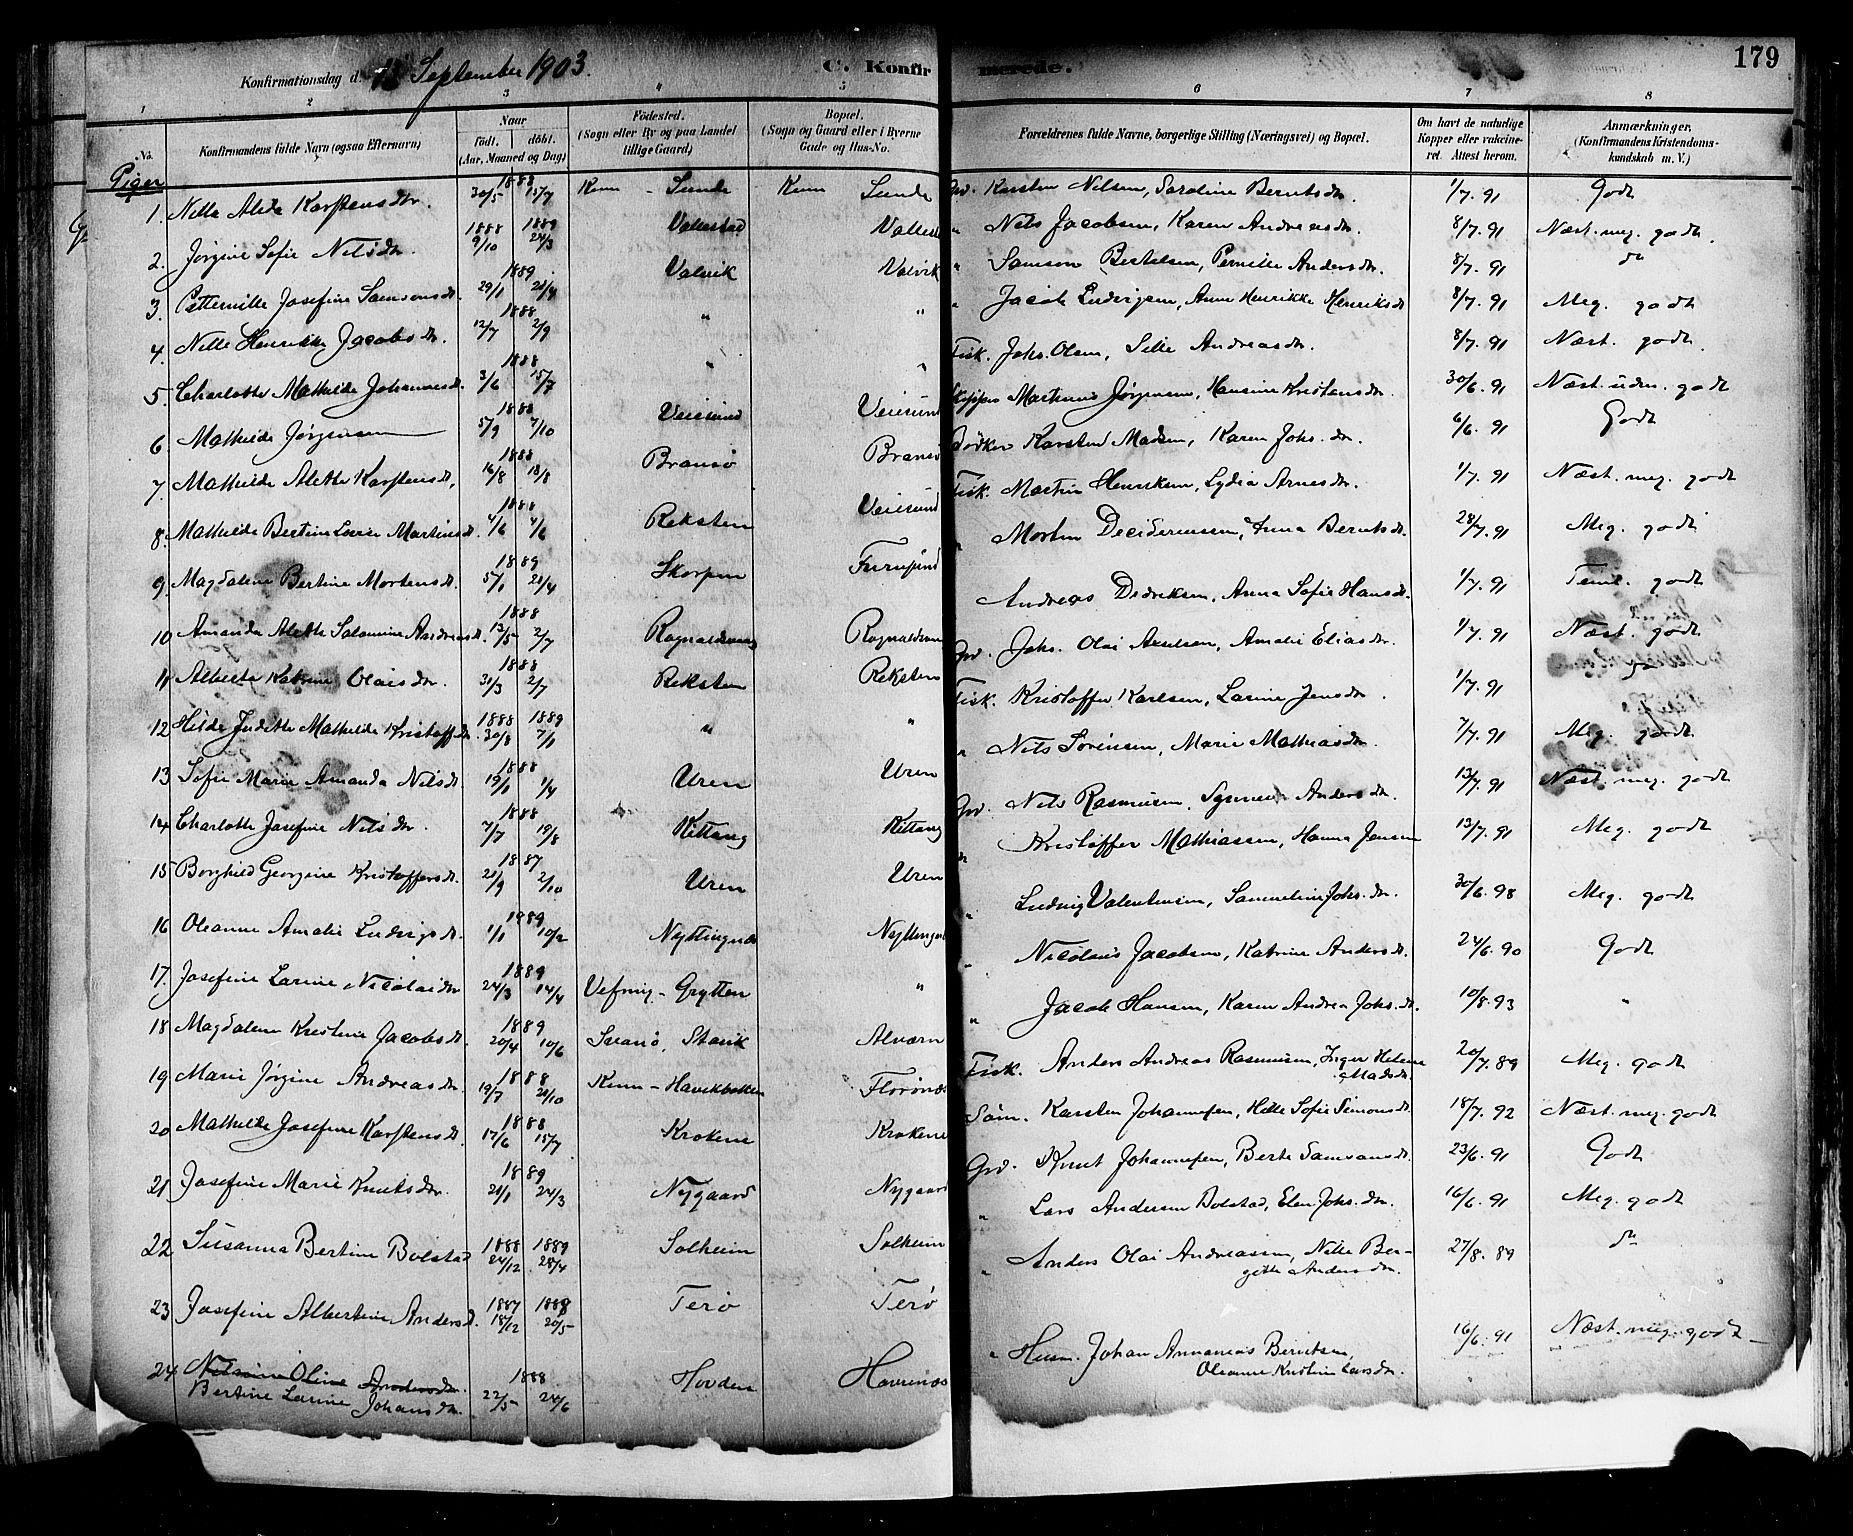 179
Konfirmationsdag d. 13 September 1903. C. Konfirmerede.
1 2 3 4 5 6 7 8
No. Konfirmandens fulde Navn (ogsaa Efternavn) Naar Født. døbt. (Aar, Maaned og Dag) Fødested. (Sogn eller By og paa Landet tillige Gaard) Bopæl. (Sogn og Gaard eller i Byerne Gade og Hus-No. Forældrenes fulde Navne, borgerlige Stilling (Næringsvei) og Bopæl. Om havt de naturlige Kopper eller vakcineret. Attest herom. Anmærkninger. (Konfirmandens Kristendomskundskab m. V.)
Piger
1. Nille Alida Karstensdr. 1888 30/5 15/7 Kinn - Sunde Kinn Sunde Grd. Karsten Nilsen, Saroline Berntsdr. 1/7. 91 Godt
2. Jørgine Sofie Nilsdr. 1888 9/10 1889 24/3 Valvestad Nils Jacobsen, Karen Andreasdr. 8/7. 91 Næst. meg. godt.
3. Petternille Josefine Samsonsdt. 1889 29/1 Valvik Valvik " Samson Bertelsen, Pernille Andersdr. 8/7. 91 do
4. Nille Henrikke Jacobsdr. 1888 12/7 2/9 " " " Jacob Ludvigsen, Anne Henrikke Henriksdt 8/7. 91 Meg. godt
5. Charlotte Mathilde Johannesdt. 1888 3/6 15/7 " " Fisk. Johs. Olsen, Silke Andreasdr. 8/7. 91 Næst. godt.
6. Mathilde Jørgensen 1888 5/9 7/10 Veiesund Veiesund Skipper Martinus Jørgensen, Hansine Kristensdr. 30/6. 91 Næst. udm. godt
7. Mathilde Alette Karstensdt. 1888 16/8 18/8 Bransø Bransø Bødker Karsten Madsen, Karen Johs.dr. 6/6. 91 Godt
8. Mathilde Bertine Lovise Martinsdt. 1888 4/6 4/6 Reksten Veiesund Fisk. Martin Henriksen, Lydia Arnesdr. 1/7. 91 Næst. meg. godt
9. Magdalene Bertine Mortensdt. 1889 5/1 21/4 Skorpen Furusund " Morten Desideriussen, Anna Berntsdt. 28/7. 91 Meg. godt
10 Amanda Alette Salomine Andreasdt. 1888 13/5 2/7 Rognaldsvaag Andreas Dedriksen, Anna Sofie Hansdt. 1/7. 91 Teml. godt
11 Alberte Katrine Olaisdr. 1888 31/3 2/7 Reksten Reksten Grd. Johs. Olai Axelsen, Amalie Eliasdr 1/7. 91 Næst. godt
12 Hilda Judithe Mathilde Kristoffdr. 1888 30/8 1889 7/1 " " Fisk. Kristoffer Karlsen, Larine Jensdr. 1/7. 91
13 Sofie Marie Amanda Nilsdt. 1888 19/1 1/4 Uren Uren " Nils Sørensen, Marie Mathiasdr. 7/7. 91 Meg. godt
14 Charlotte Josefine Nilsdr. 1888 7/7 19/8 Kittang Kittang Grd. Nils Rasmussen, Synneve Andersdr. 13/7. 91 Næst. meg. godt
15 Borghild Georgine Kristoffersdt. 1887 2/10 Uren Uren Kristoffer Mathiassen, Hanna Jensen 13/7. 91 Meg. godt
16 Oleanne Amalie Ludvigsdt. 1889 1/1 10/2 Nyttingnæs Nyttingnæs " Ludvig Valentinsen, Sammeline Johs.dr. 30/6. 98 Meg. godt
17. Josefine Larine Nicolaidr 1889 24/3 14/4 Vefring - Grytten " " Nicolaus Jacobsen, Katrine Andersdt. 24/6. 90 Godt
18 Magdalene Kristine Jacobsdt. 1889 20/4 10/6 Svanø, Stavik Alværn " Jacob Hansen, Karen Andrea Johs.dt. 10/8. 93 "
19 Marie Jørgine Andreasdr 1888 19/7 21/10 Kinn - Havikbotten Florønæs Fisk. Anders Andreas Rasmussen, Inger Helene Madsdr. 20/7. 89 Meg. godt
20 Mathilde Josefine Karstensdt. 1888 17/6 15/7 Krokene Krokene Søm. Karsten Johannesen, Helle Sofie Simonsdt 18/7. 92 Næst. meg. godt
21 Josefine Marie Knutsdr. 1889 21/1 24/3 Nygaard Nygaard Grd. Knut Johannesen, Berte Samsonsdt. 23/6. 91 Godt
22 Susanna Bertine Bolstad 1888 24/12 1889 28/4 Solheim Solheim " Lars Andersen Bolstad, Elen Johs.dr. 16/6. 91 Meg. godt
23 Josefine Albertine Andersdt. 1887 18/12 1888 20/5 Terø Terø " Anders Olai Andreassen, Nille Bergitte Andersdr. 27/8. 89 do
24 Nilsine Oline Andersdr. Bertine Larine Johansdr. 1888 22/5 24/6 Hovden Havrenæs " Husm. Johan Annanias Berntsen, Oleanne Kristine Larsdr. 16/6. 91 Næst. meg. godt